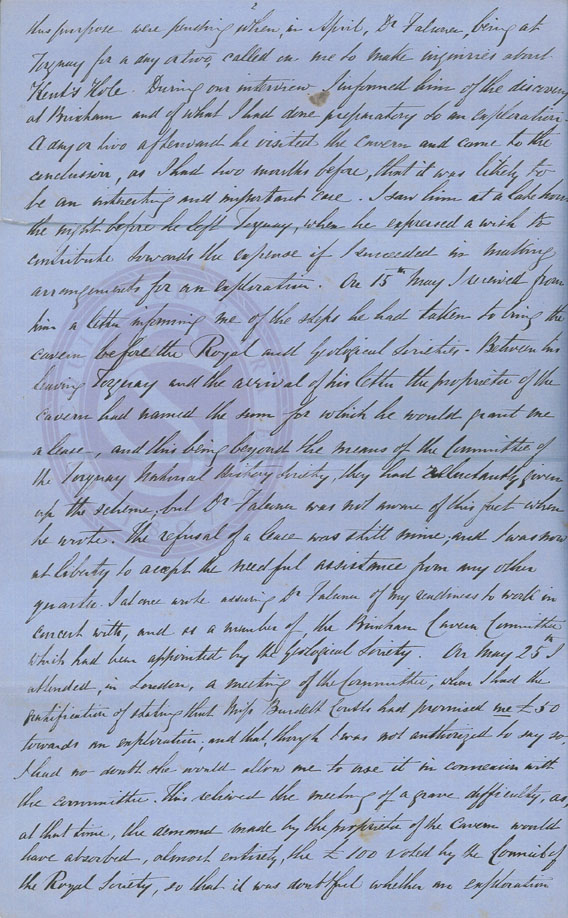 2
this purpose were pending when, in April, Dr Falconer being at
Torquay for a day or two, called on me to make inquiries about
Kent's Hole. During our interview I informed him of the discovery
at Brixham and of what I had done preparatory to an exploration.
A day or two afterwards he visited the cavern and came to the
conclusion, as I had two months before, that it was likely to
be an interesting and important case. I saw him at a late hour
the night before he left Torquay, when he expressed a wish to
contribute towards the expense if I succeeded in making
arrangements for an exploration. On 15th May I received from
him a letter informing me of the steps he had taken to bring the
cavern before the Royal and Geological Societies - Between his
leaving Torquay and the arrival of his letter the proprietor of the
cavern had named the sum for which he would grant me
a lease, and this being beyond the means of the Committee of
the Torquay Natural History Society, they had reluctantly given
up the scheme, but Dr Falconer was not aware of this fact when
he wrote. The refusal of a lease was still mine, and I was now
at liberty to accept the needful assistance from any other
quarter. I at once wrote assuring Dr Falconer of my readiness to work in
concert with, and as a member of, the Brixham Cavern Committee
which had been appointed by the Geological Society. On May 25th I
attended, in London, a meeting of the Committee, when I had the
gratification of stating that Miss Burdett Coutts had promised me £50
towards an exploration, and that, though I was not authorized to say so,
I had no doubt she would allow me to use it in connexion with
the committee. This relieved the meeting of a grave difficulty, as,
at that time, the demand made by the proprietor of the cavern would
have absorbed, almost entirely, the £100 voted by the Council of
the Royal Society, so that it was doubtful whether an exploration